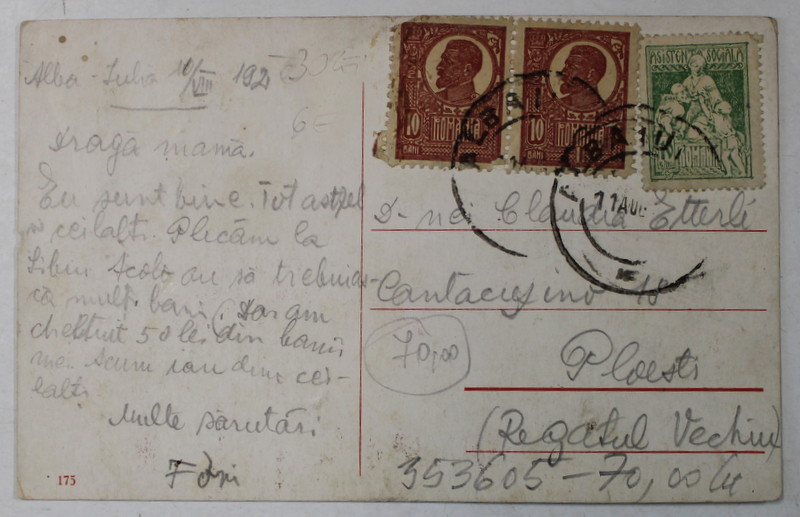 Alba-Iulia 10/VIII 192
30
6=
Dragă mamă.
Eu sunt bine. Tot astfel
și ceilalți. Plecăm la
Sibiu. Acolo au să trebuias-
că mulți bani. Doar am
cheltuit 50 lei din banii
mei. Acum iau din cei-
lalți.
Multe sărutări
175
10 10
BANI
ROMANIA
ASISTENȚA SOCIALA
ROMANIA
ALBA IU
ALBA IU
11 AUG
D-nei Claudia Etterlé
Cantacuzino 18
70,00
Ploesti
(Regatul Vechiu)
353605-70,00 lei